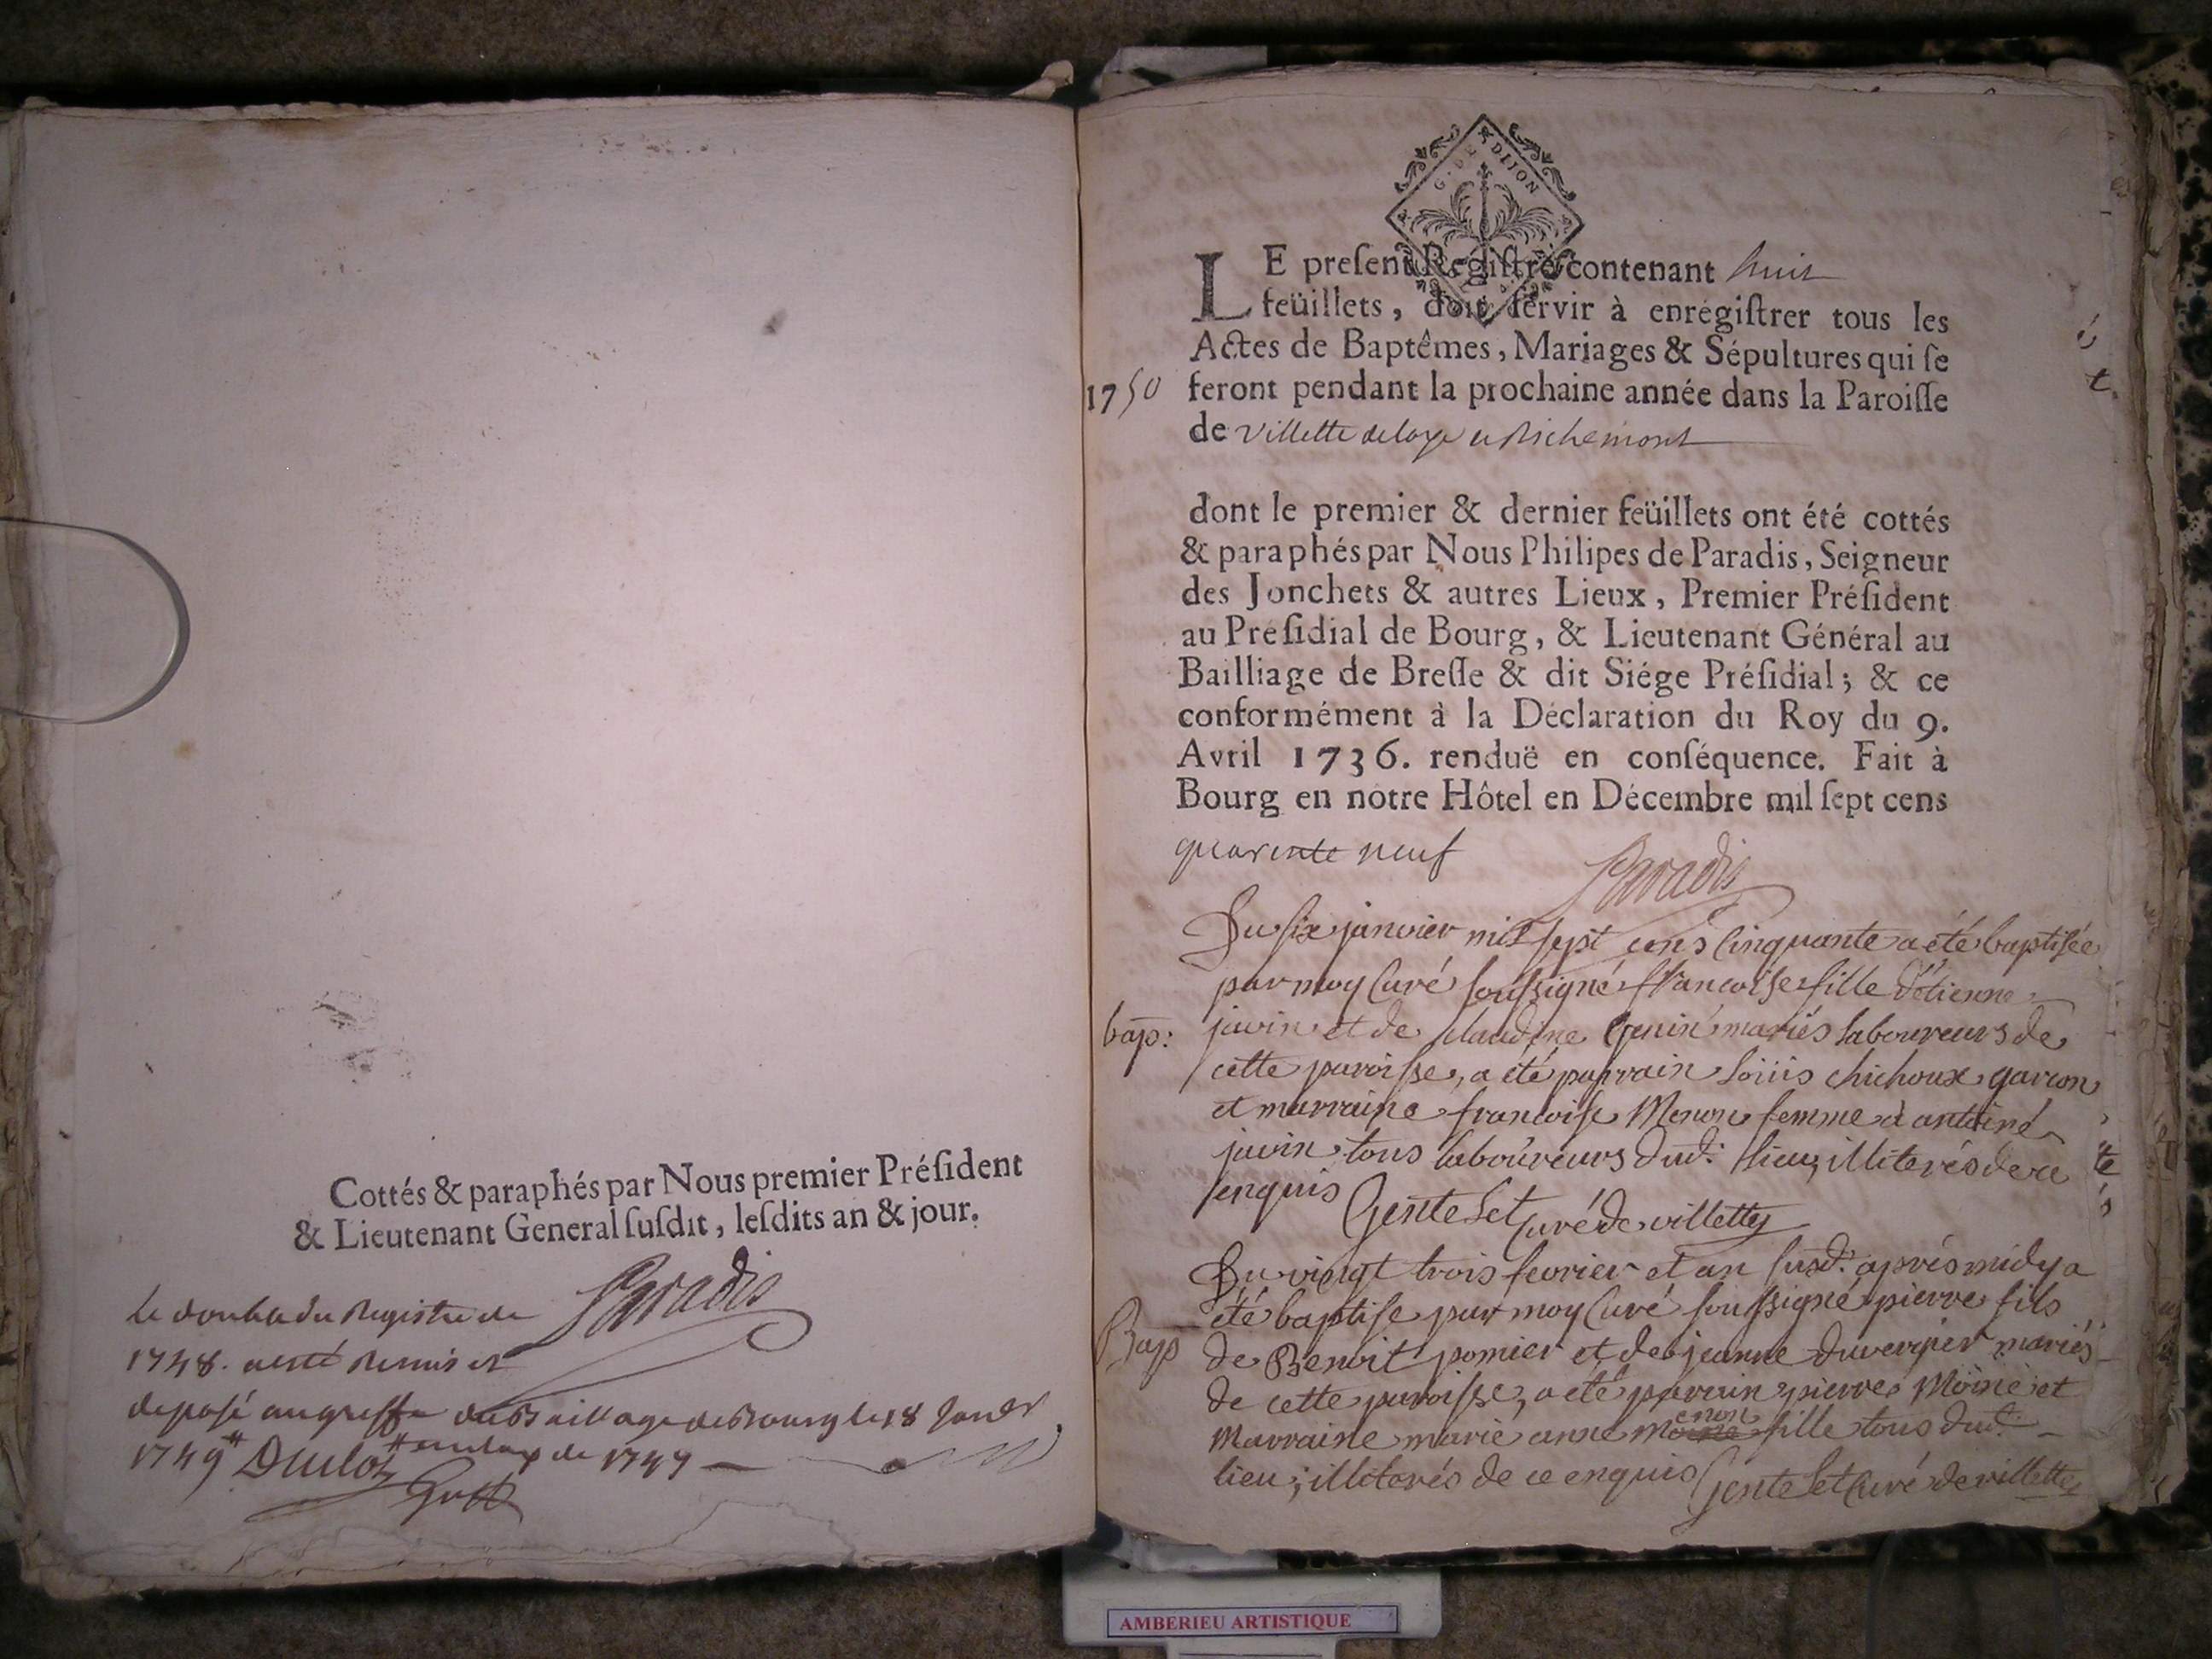 Cottés & paraphés par Nous premier Préſident
& Lieutenant General ſuſdit, leſdits an & jour.
Paradis
le double du Registre de
1748. a esté Remis et
deposé au greffe du Baillage de Bourg le 18 Janvr
1749
de 1749
G. DE DIJON
LE preſent Regiſtre contenant huit
feüillets, doit ſervir à enrégiſtrer tous les
Actes de Baptêmes, Mariages & Sépultures qui ſe
1750 feront pendant la prochaine année dans la Paroiſſe
de villette de loye et Richemont
dont le premier & dernier feüillets ont été cottés
& paraphés par Nous Philipes de Paradis, Seigneur
des Jonchets & autres Lieux, Premier Préſident
au Préſidial de Bourg, & Lieutenant Général au
Bailliage de Breſſe & dit Siége Préſidial; & ce
conformément à la Déclaration du Roy du 9.
Avril 1736. renduë en conſéquence. Fait à
Bourg en notre Hôtel en Décembre mil ſept cens
quarente neuf
Paradis
Du six janvier mil sept cens cinquante a été baptisée
par moy curé soussigné francoise fille d'étienne
bap: javin et de claudine Genin mariés laboureurs de
cette paroisse, a été parrain loüis chichoux garcon
et marraine francoise Monon femme à antoine
javin tous laboureurs dud: lieu, illiterés de ce
enquis
Gentelet curé de villette
Du vingt trois fevrier et an susd: après midy a
été baptise par moy curé soussigné pierre fils
Bap de Benoit pomier et de jeanne duverger mariés
de cette paroisse, a été parrain pierre Moine et
Marraine marie anne monon fille tous dud:
lieu; illiterés de ce enquis Gentelet curé de villette
AMBERIEU ARTISTIQUE